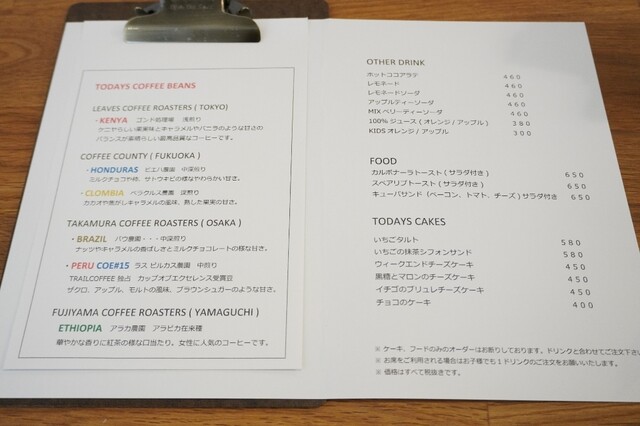 TODAYS COFFEE BEANS
LEAVES COFFEE ROASTERS ( TOKYO)
・KENYA ゴンド処理場 浅煎り
ケニヤらしい果実味とキャラメルやバニラのような甘さの
バランスが素晴らしい最高品質なコーヒーです。
COFFEE COUNTY ( FUKUOKA )
・HONDURAS ピエハ農園 中深煎り
ミルクチョコや柿、サトウキビの様なやわらかい甘さ。
・CLOMBIA ベラクルス農園 深煎り
カカオや焦がしキャラメルの風味、熟した果実の甘さ。
TAKAMURA COFFEE ROASTERS ( OSAKA )
・BRAZIL バウ農園・・・中深煎り
ナッツやキャラメルの香ばしさとミルクチョコレートの様な甘さ。
・PERU COE#15 ラス ピルカス農園 中煎り
TRAILCOFFEE 独占 カップオブエクセレンス受賞豆
ザクロ、アップル、モルトの風味、ブラウンシュガーのような甘さ。
FUJIYAMA COFFEE ROASTERS ( YAMAGUCHI )
ETHIOPIA アラカ農園 アラビカ在来種
華やかな香りに紅茶の様な口当たり。女性に人気のコーヒーです。
OTHER DRINK
ホットココアラテ 460
レモネード 460
レモネードソーダ 460
アップルティーソーダ 460
MIX ベリーティーソーダ 460
100% ジュース ( オレンジ / アップル ) 380
KIDS オレンジ / アップル 300
FOOD
カルボナーラトースト ( サラダ付き ) 650
スペアリブトースト ( サラダ付き ) 650
キューバサンド ( ベーコン、トマト、チーズ ) サラダ付き 650
TODAYS CAKES
いちごタルト 580
いちごの抹茶シフォンサンド 580
ウィークエンドチーズケーキ 450
黒糖とマロンのチーズケーキ 450
イチゴのブリュレチーズケーキ 450
チョコのケーキ 400
※ ケーキ、フードのみのオーダーはお断りしております。ドリンクと合わせてご注文下さい
※ お席をご利用される場合はお子様でも 1 ドリンクのご注文をお願いいたします。
※ 価格はすべて税抜きです。